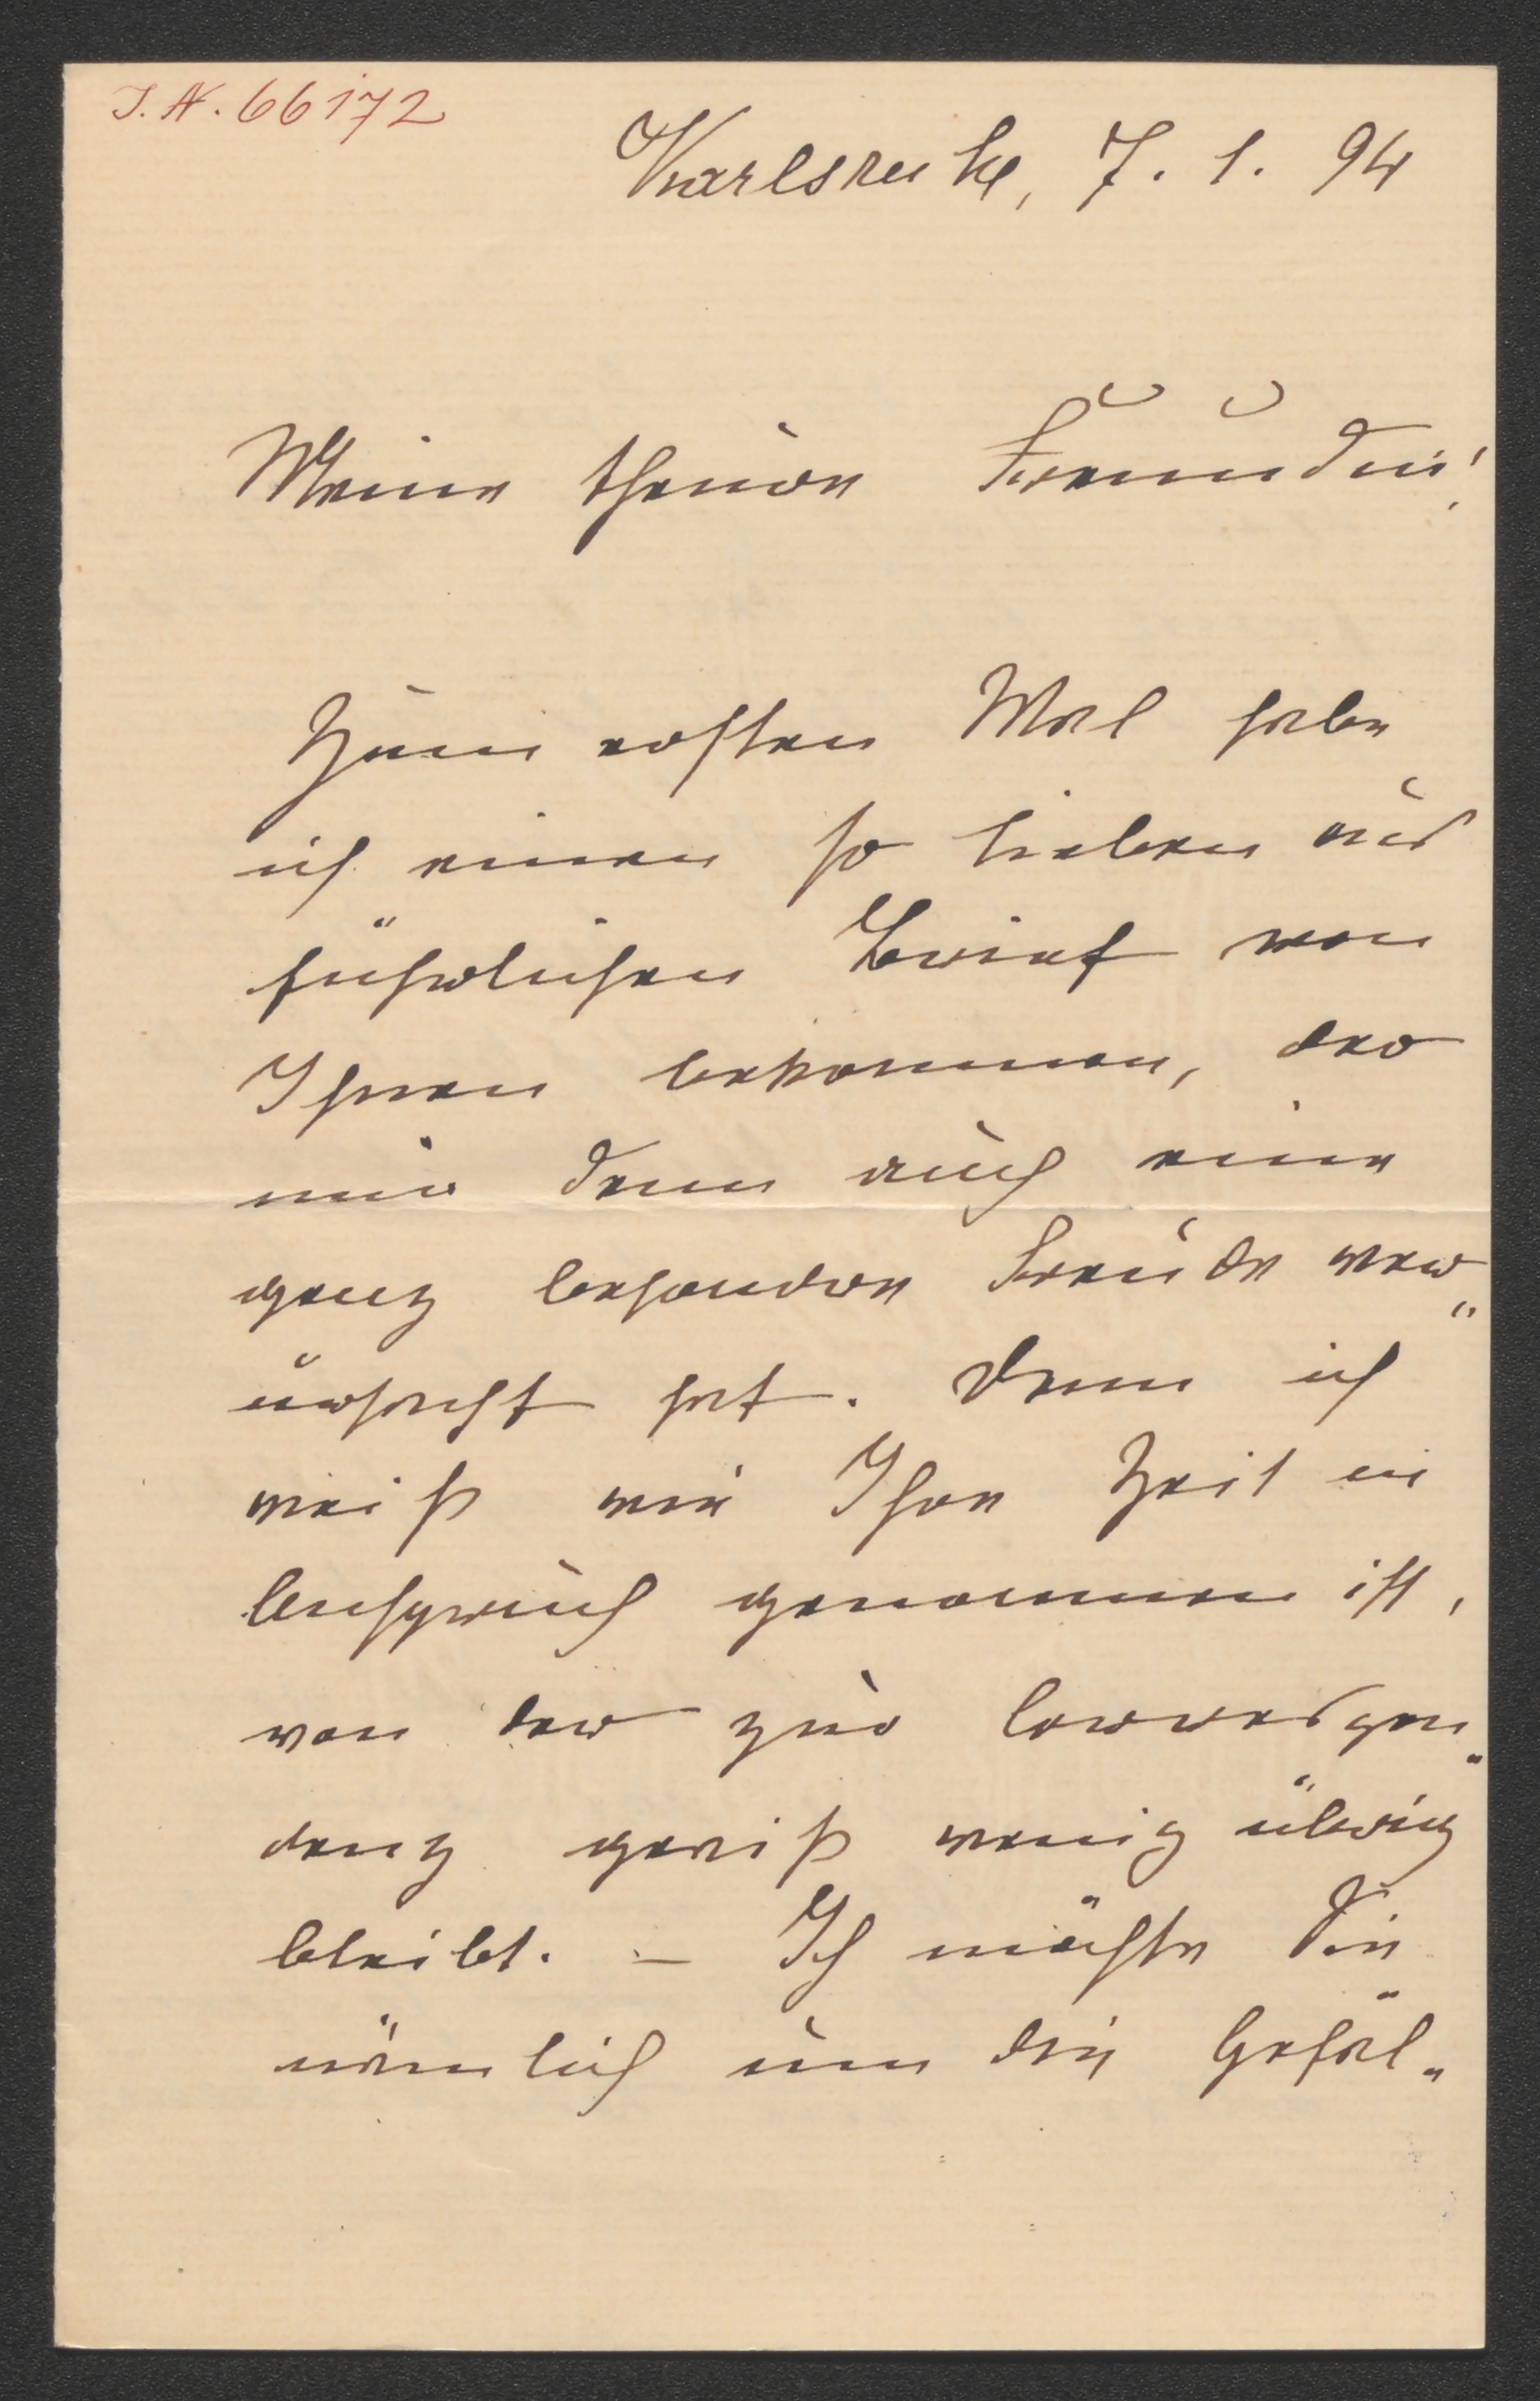 J. N. 66172
Karlsruhe, 7. 1. 94
Meine theure Freundin!
Zum ersten Mal habe
ich einen so lieben aus
führlichen Brief von
Ihnen bekommen, der
mir denn auch eine
ganz besondere Freude ver„
ursacht hat. Denn ich
weiß wie Ihre Zeit in
Anspruch genommen ist,
von der zur Correspon„
denz gewiß wenig übrig
bleibt. – Ich möchte Sie
nämlich um die Gefäl„